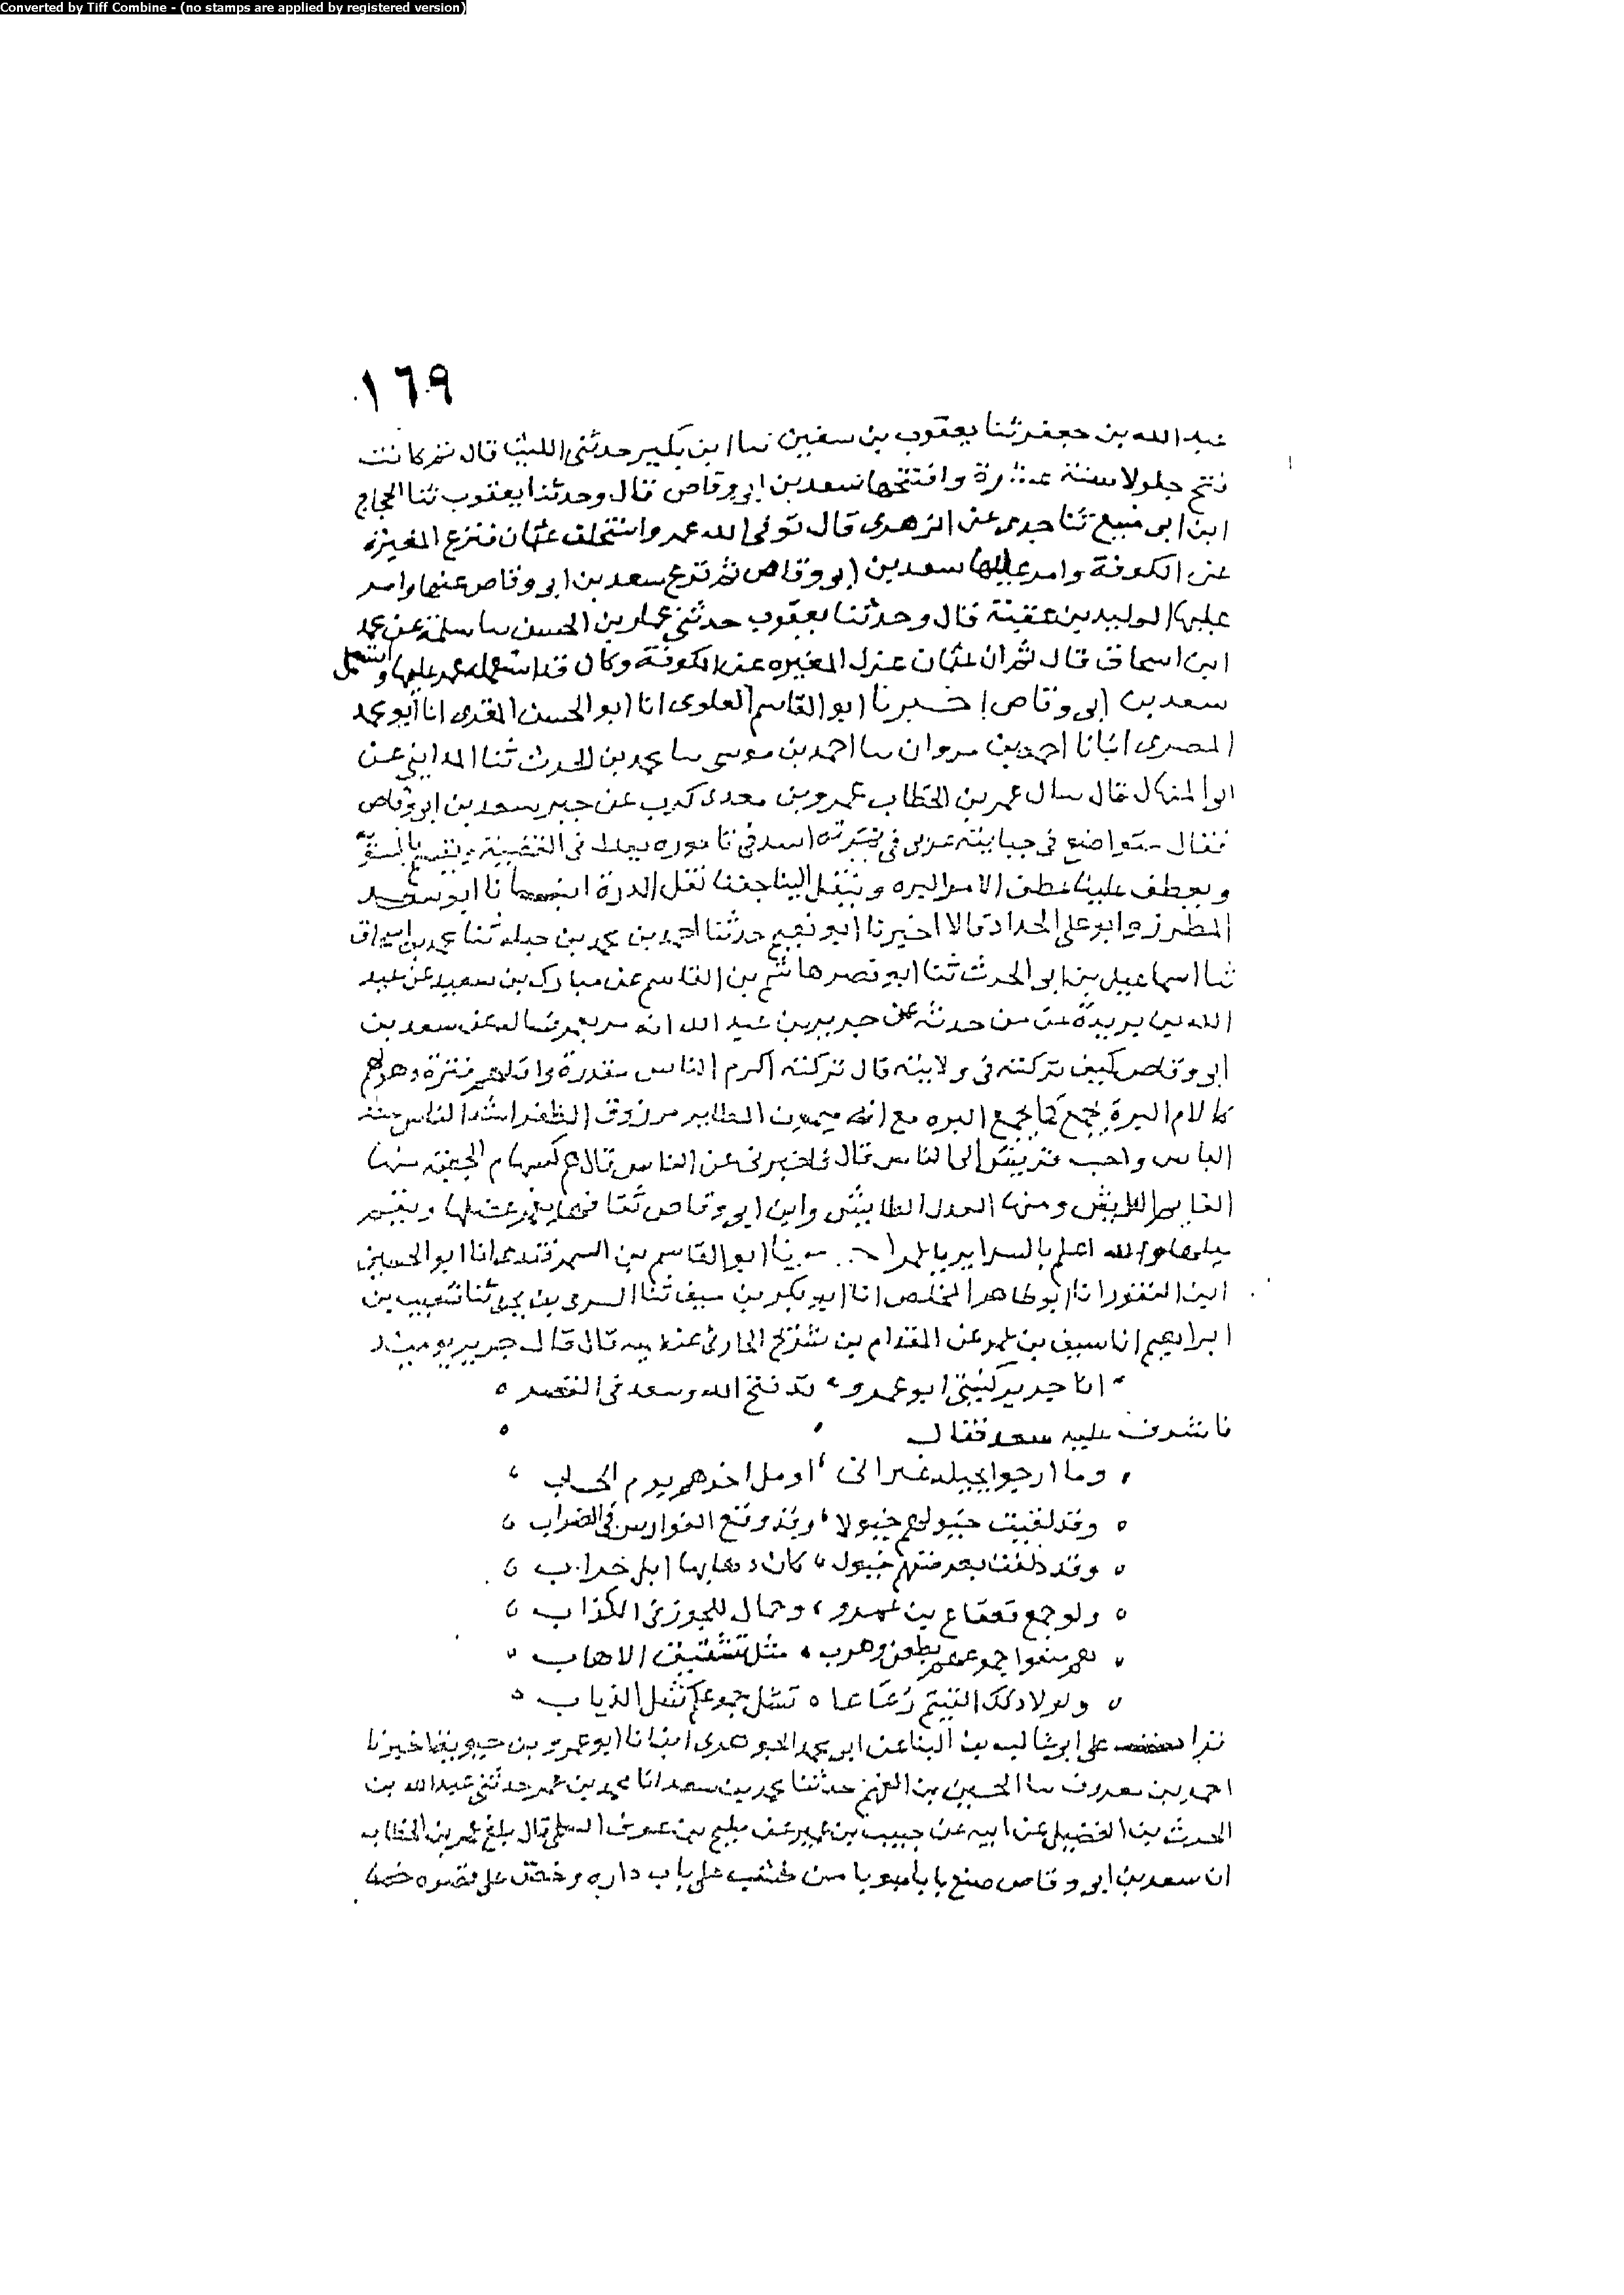 Converted by Tiff Combine - (no stamps are applied by registered version)
١٦٩
عبد الله بن جعفر ثنا يعقوب بن سفين نا ابن بكير حدثنى الليث قال ثم كانت
فتح جلولا سنة عشرة وافتتحها سعد بن ابى وقاص قال وحدثنا يعقوب ثنا الحجاج
ابن ابى منيع ثنا جدى عن الزهرى قال توفى الله عمر واستخلف عثمان فنزع المغيرة
عن الكوفة وامر عليها سعد بن ابى وقاص ثم نزع سعد بن ابى وقاص عنها وامر
عليها الوليد بن عقبة قال وحدثنا يعقوب حدثنى عمار بن الحسن نا سلمة عن محمد
ابن اسحاق قال ثم ان عثمان عزل المغيره عن الكوفة وكان قد استعمله عمر عليها واستعمل
سعد بن ابى وقاص اخبرنا ابو القاسم العلوى انا ابو الحسن المقرى انا ابو محمد
المصرى انبانا احمد بن مروان نا احمد بن موسى نا محمد بن الحرث ثنا المداينى عن
ابى المنهال قال سال عمر بن الخطاب عمرو بن معدى كرب عن خبر سعد بن ابى وقاص
فقال متواضع فى جبايته عربى فى نمرته اسد فى تاموره يعدل فى القضية ويقسم بالسوية
ويعطف علينا عطف الام البره وينقل الينا حقنا نقل الذرة انبانا ابو سعد
المطرز وابو على الحداد قالا اخبرنا ابو نعيم حدثنا احمد بن محمد بن جبله ثنا محمد بن اسحاق
ثنا اسماعيل بن ابى الحرث ثنا ابو نصر هاشم بن القاسم عن مبارك بن سعيد عن عبد
الله بن بريدة عن من حدثه عن جرير بن عبد الله انه مر بعمر فساله عن سعد بن
ابى وقاص كيف تركته فى ولايته قال تركته اكرم الناس مقدرة واقلهم فترة وهو لهم
كالام البرة يجمع كما يجمع البره مع انه ميمون الطاير مرزوق الظفر اشد الناس عند
الباس واحب قريش الى الناس قال فاخبرنى عن الناس قال هم كسهام الجعبة منها
القايم الرايش ومنها العدل الطايش وابن ابى وقاص ثقافها يغمز عضلها ويقيم
ميلها والله اعلم بالسراير يا عمر اخبرنا ابو القاسم بن السمرقندى انا ابو الحسين
ابن النقور انا ابو طاهر المخلص انا ابو بكر بن سيف ثنا السرى بن يحيى ثنا شعيب بن
ابراهيم انا سيف بن عمر عن المقدام بن شريح الحارثى عن ابيه قال قال جرير يوميذ
انا جرير كنيتى ابو عمرو قد فتح الله وسعد فى القصر
فاشرف عليه سعد فقال
وما ارجوا بجيله غير انى اومل اجرهم يوم الحساب
وقد لقيت خيولهم خيولا وقد وقع الفوارس فى الضراب
وقد دلفت بعرصتهم خيول كان دهاتها ابل جراب
ولو جمع قعقاع بن عمرو وحمال للجوز فى الكذاب
هم منعوا جموعهم بطعن وضرب مثل تشقيق الاهاب
ولولا ذلك الفيتم رعاعا تشل جموعكم مثل الذباب
قرات على ابى غالب بن البنا عن ابى محمد الجوهرى انبانا ابو عمر بن حيويه اخبرنا
احمد بن معروف نا الحسين بن الفهم حدثنا محمد بن سعد انا محمد بن عمر حدثنى عبد الله بن
الحرث بن الفضيل عن ابيه عن حبيب بن عمير عن مليح بن عوف السلمى قال بلغ عمر بن الخطاب
ان سعد بن ابى وقاص صنع بابا مبوبا من خشب على باب داره وخص على قصره خصا